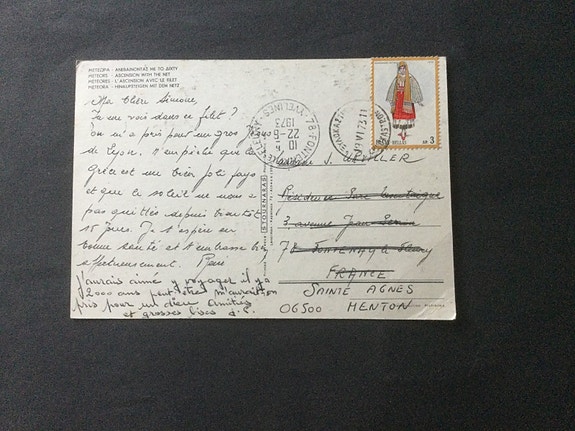 ΜΕΤΕΩΡΑ - ΑΝΕΒΑΙΝΟΝΤΑΣ ΜΕ ΤΟ ΔΙΧΤΥ
METEORS - ASCENSION WITH THE NET
METEORES - L'ASCENSION AVEC LE FILET
METEORA - HINAUFSTEIGEN MIT DEM NETZ
Ma chère Simone,
Tu me vois dans ce filet ?
On m'a pris pour un gros
de Lyon. N'empêche que la
Grèce est un bien joli pays
et que le soleil ne nous a
pas quittés depuis bientôt
15 jours. Je t'espère en
bonne santé et t'embrasse bien
affectueusement.
J'aurais aimé y voyager il y a
2000 ans peut-être m'aurait-on
pris pour un dieu Amitiés
et grosses bises
78 FONTENAY
YVELINES
10 H
22-6
1973
STOURNARAS
VI 73 11
HELLAS
ΔΡ 3
Résidence
3 avenue Jean
78 FONTENAY le Fleury
FRANCE
SAINTE AGNES
06500 MENTON